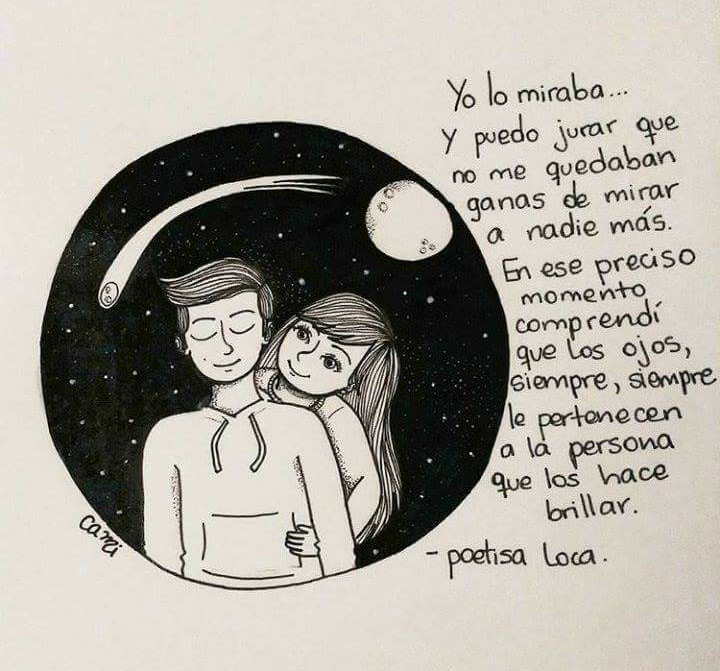 Yo lo miraba...
Y puedo jurar que
no me quedaban
ganas de mirar
a nadie más.
En ese preciso
momento
comprendí
que los ojos,
siempre, siempre
le pertenecen
a la persona
que los hace
brillar.
- poetisa loca.
Cami